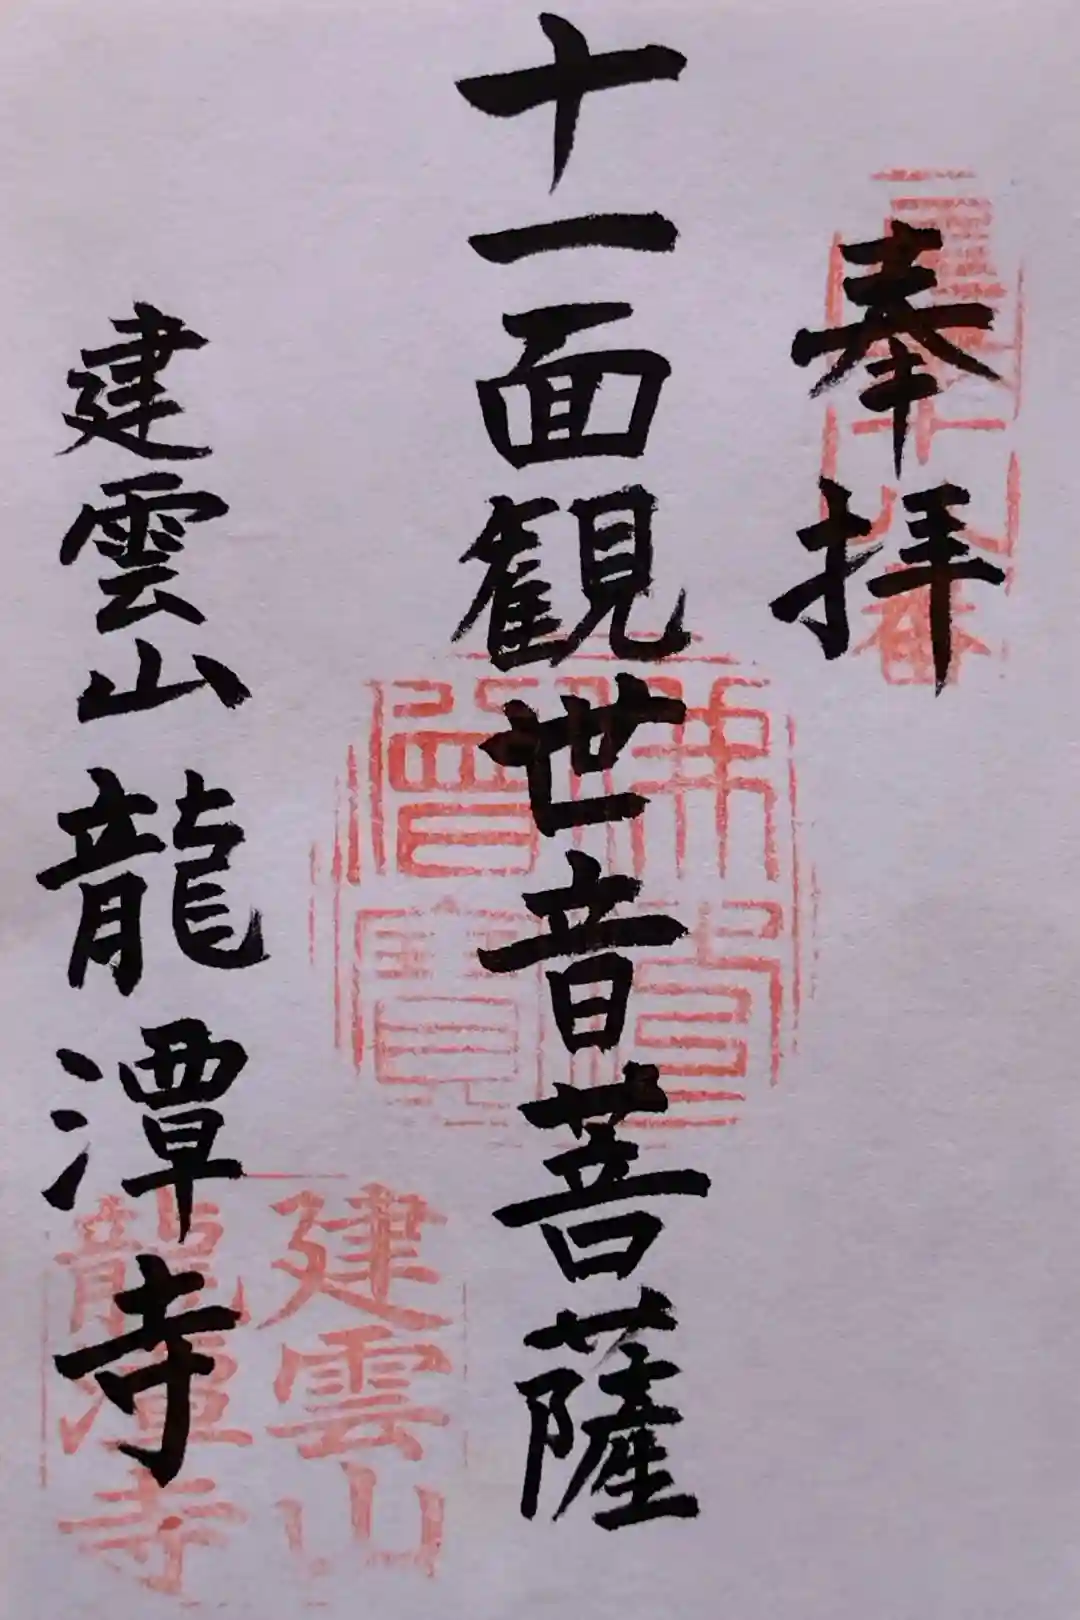 奉拝
十一面観世音菩薩
建雲山龍潭寺
佛法僧寳
建雲山
龍潭寺